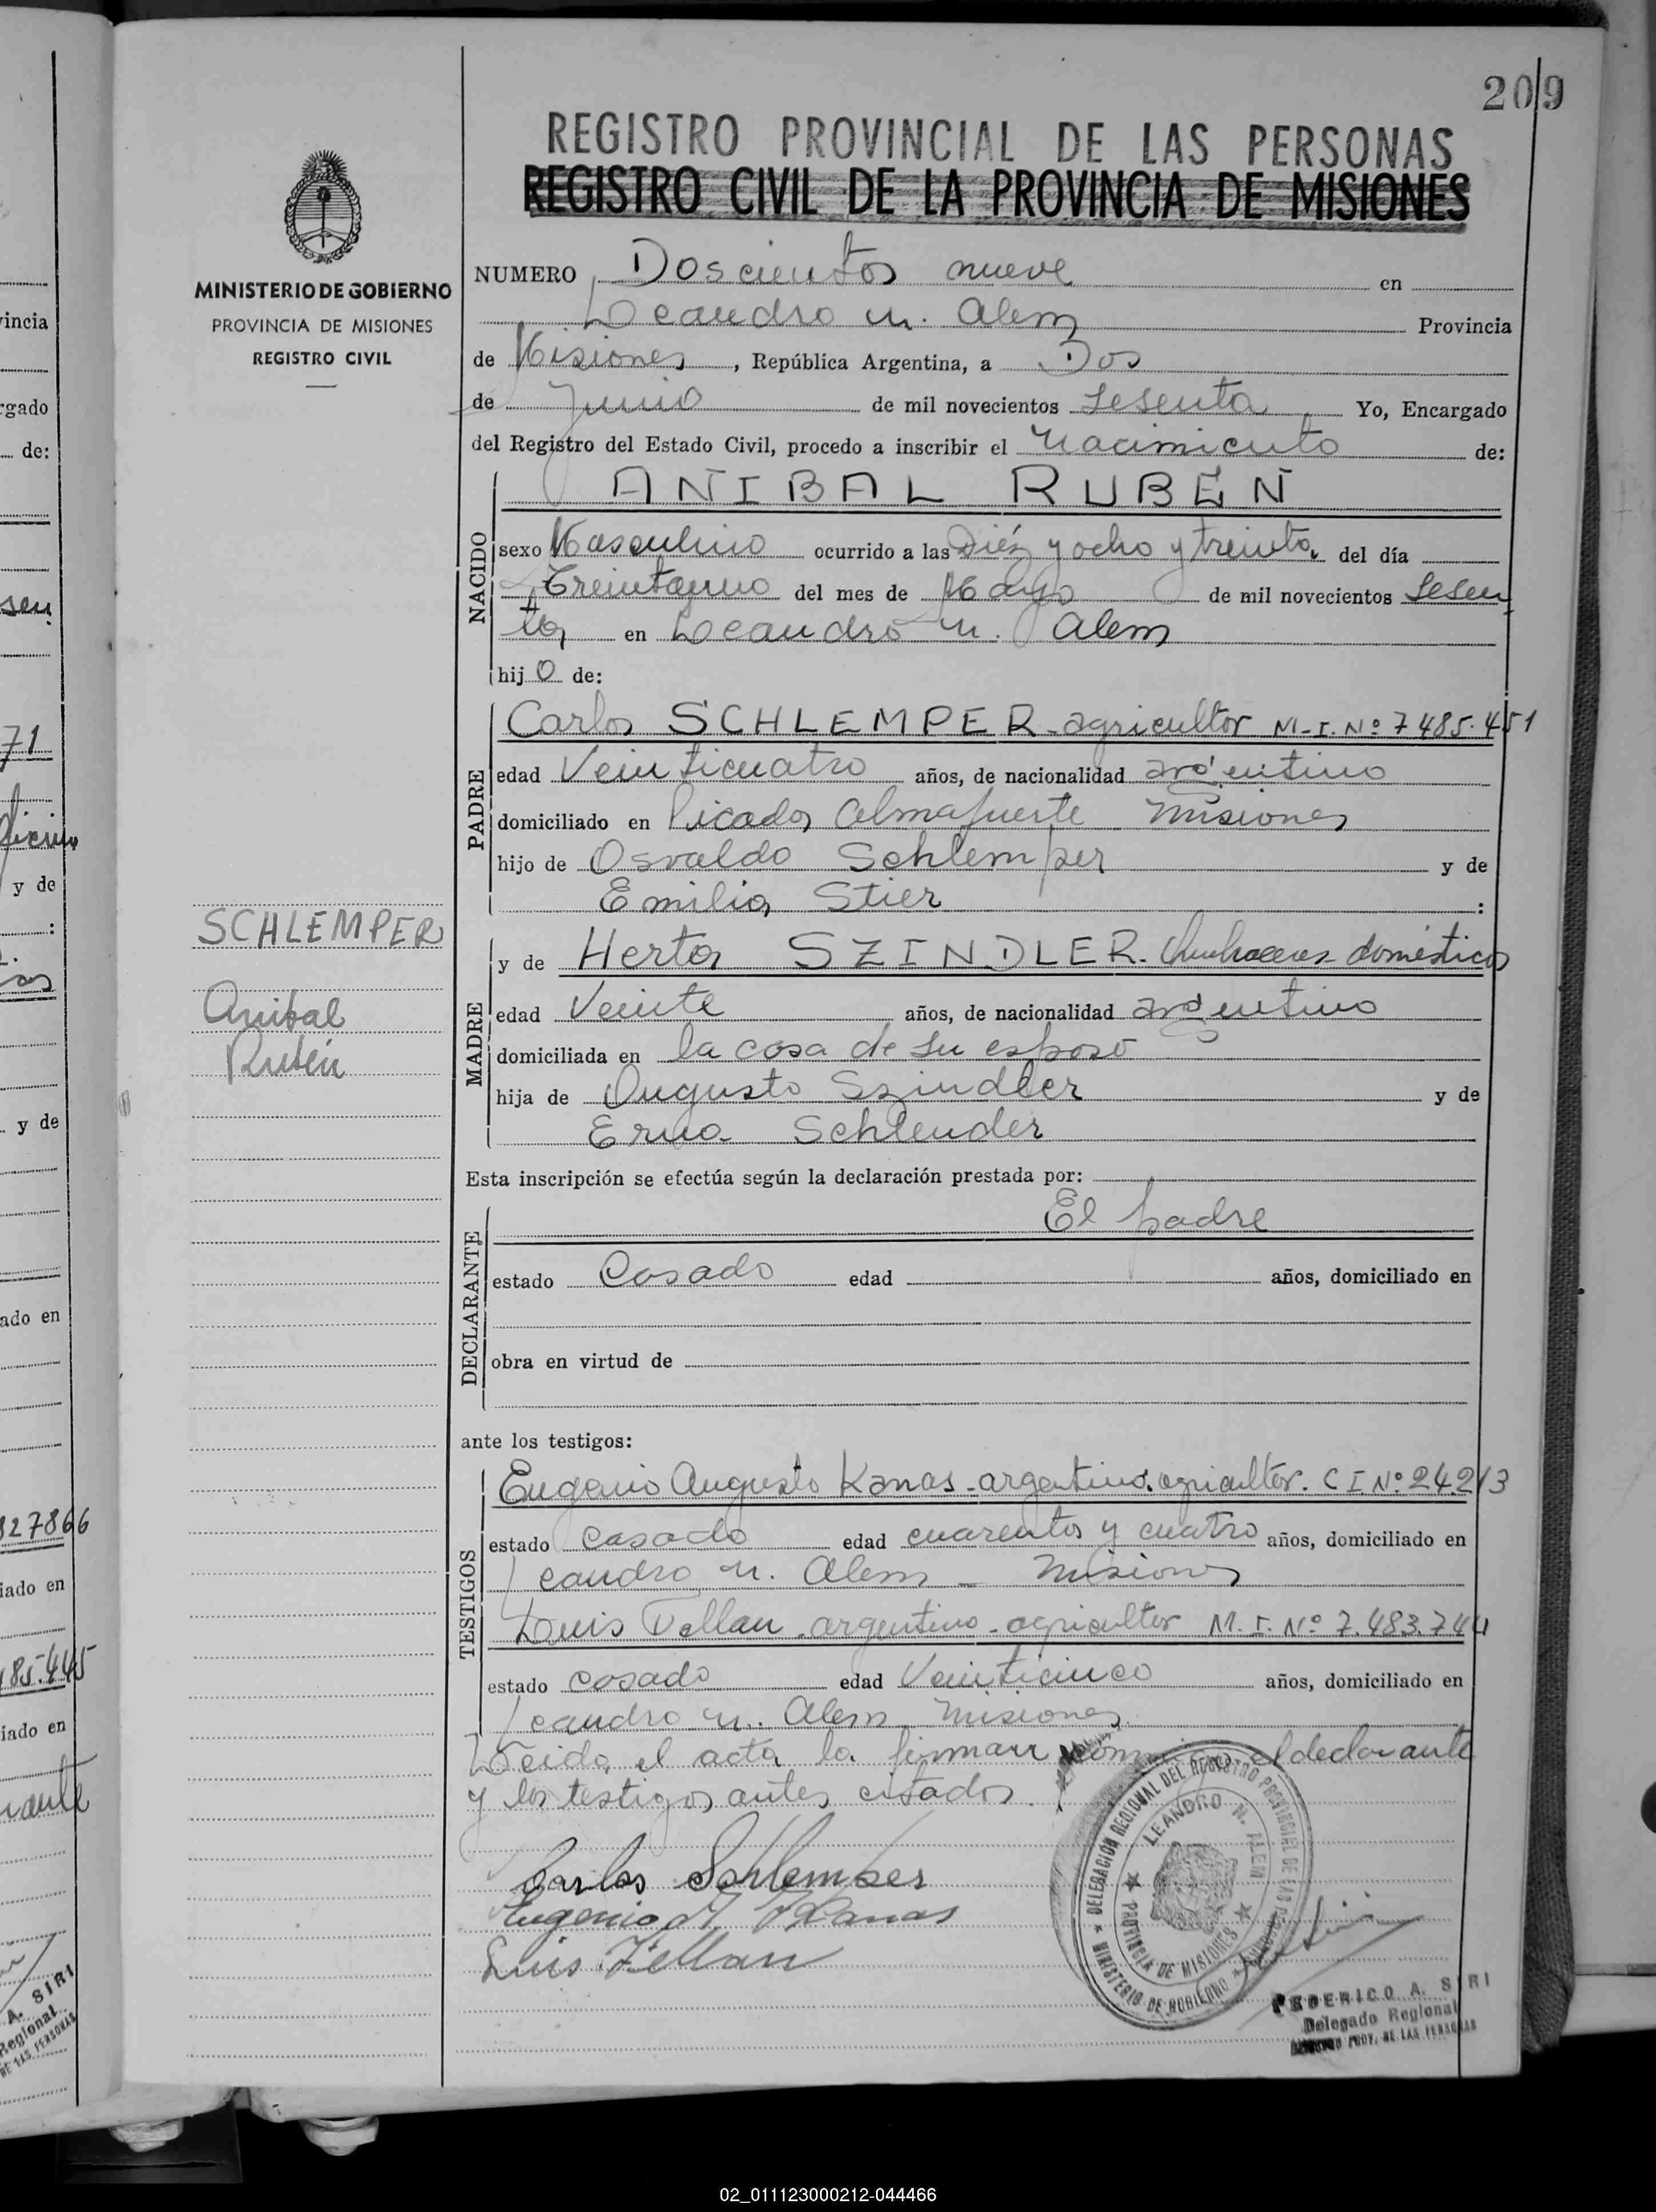 209
REGISTRO PROVINCIAL DE LAS PERSONAS
REGISTRO CIVIL DE LA PROVINCIA DE MISIONES
MINISTERIO DE GOBIERNO
PROVINCIA DE MISIONES
REGISTRO CIVIL
NUMERO Doscientos nueve en
Leandro N. Alem Provincia
de Misiones, República Argentina, a Dos
de Junio de mil novecientos Sesenta Yo, Encargado
del Registro del Estado Civil, procedo a inscribir el Nacimiento de:
NACIDO
ANIBAL RUBEN
sexo Masculino ocurrido a las Diéz y ocho y treinta, del día
Treintauno del mes de Mayo de mil novecientos Sesen
ta, en Leandro N. Alem
hijo de:
PADRE
Carlos SCHLEMPER - agricultor M.I. Nº 7485.451
edad Veinticuatro años, de nacionalidad argentino
domiciliado en Picada Almafuerte Misiones
hijo de Osvaldo Schlemper y de
Emilia Stier :
SCHLEMPER
Anibal
Rubén
MADRE
y de Herta SZINDLER. Quehaceres domésticos
edad Veinte años, de nacionalidad argentina
domiciliada en la casa de su esposo
hija de Augusto Szindler y de
Erna Schlender
Esta inscripción se efectúa según la declaración prestada por:
DECLARANTE
El padre
estado Casado edad años, domiciliado en
obra en virtud de
ante los testigos:
TESTIGOS
Eugenio Augusto Kanas - argentino. agricultor. C I Nº 24.213
estado casado edad cuarenta y cuatro años, domiciliado en
Leandro N. Alem - Misiones
Luis Tellan - argentino - agricultor M.I. Nº 7.483.744
estado casado edad Veinticinco años, domiciliado en
Leandro N. Alem Misiones
Leida el acta la firman el declarante
y los testigos antes citados.
Carlos Schlemper
Eugenio A. Kanas
Luis Tellan
MINISTERIO DE GOBIERNO ★ DELEGACIÓN REGIONAL DEL REGISTRO PROVINCIAL DE LAS PERSONAS
LEANDRO N. ALEM
★ PROVINCIA DE MISIONES ★
FEDERICO A. SIRI
Delegado Regional
REGISTRO PROV. DE LAS PERSONAS
vincia
rgado
de:
sen
71
y de
:
y de
ado en
327866
iado en
485.445
iado en
rante
A. SIRI
Regional
DE LAS PERSONAS
02_011123000212-044466